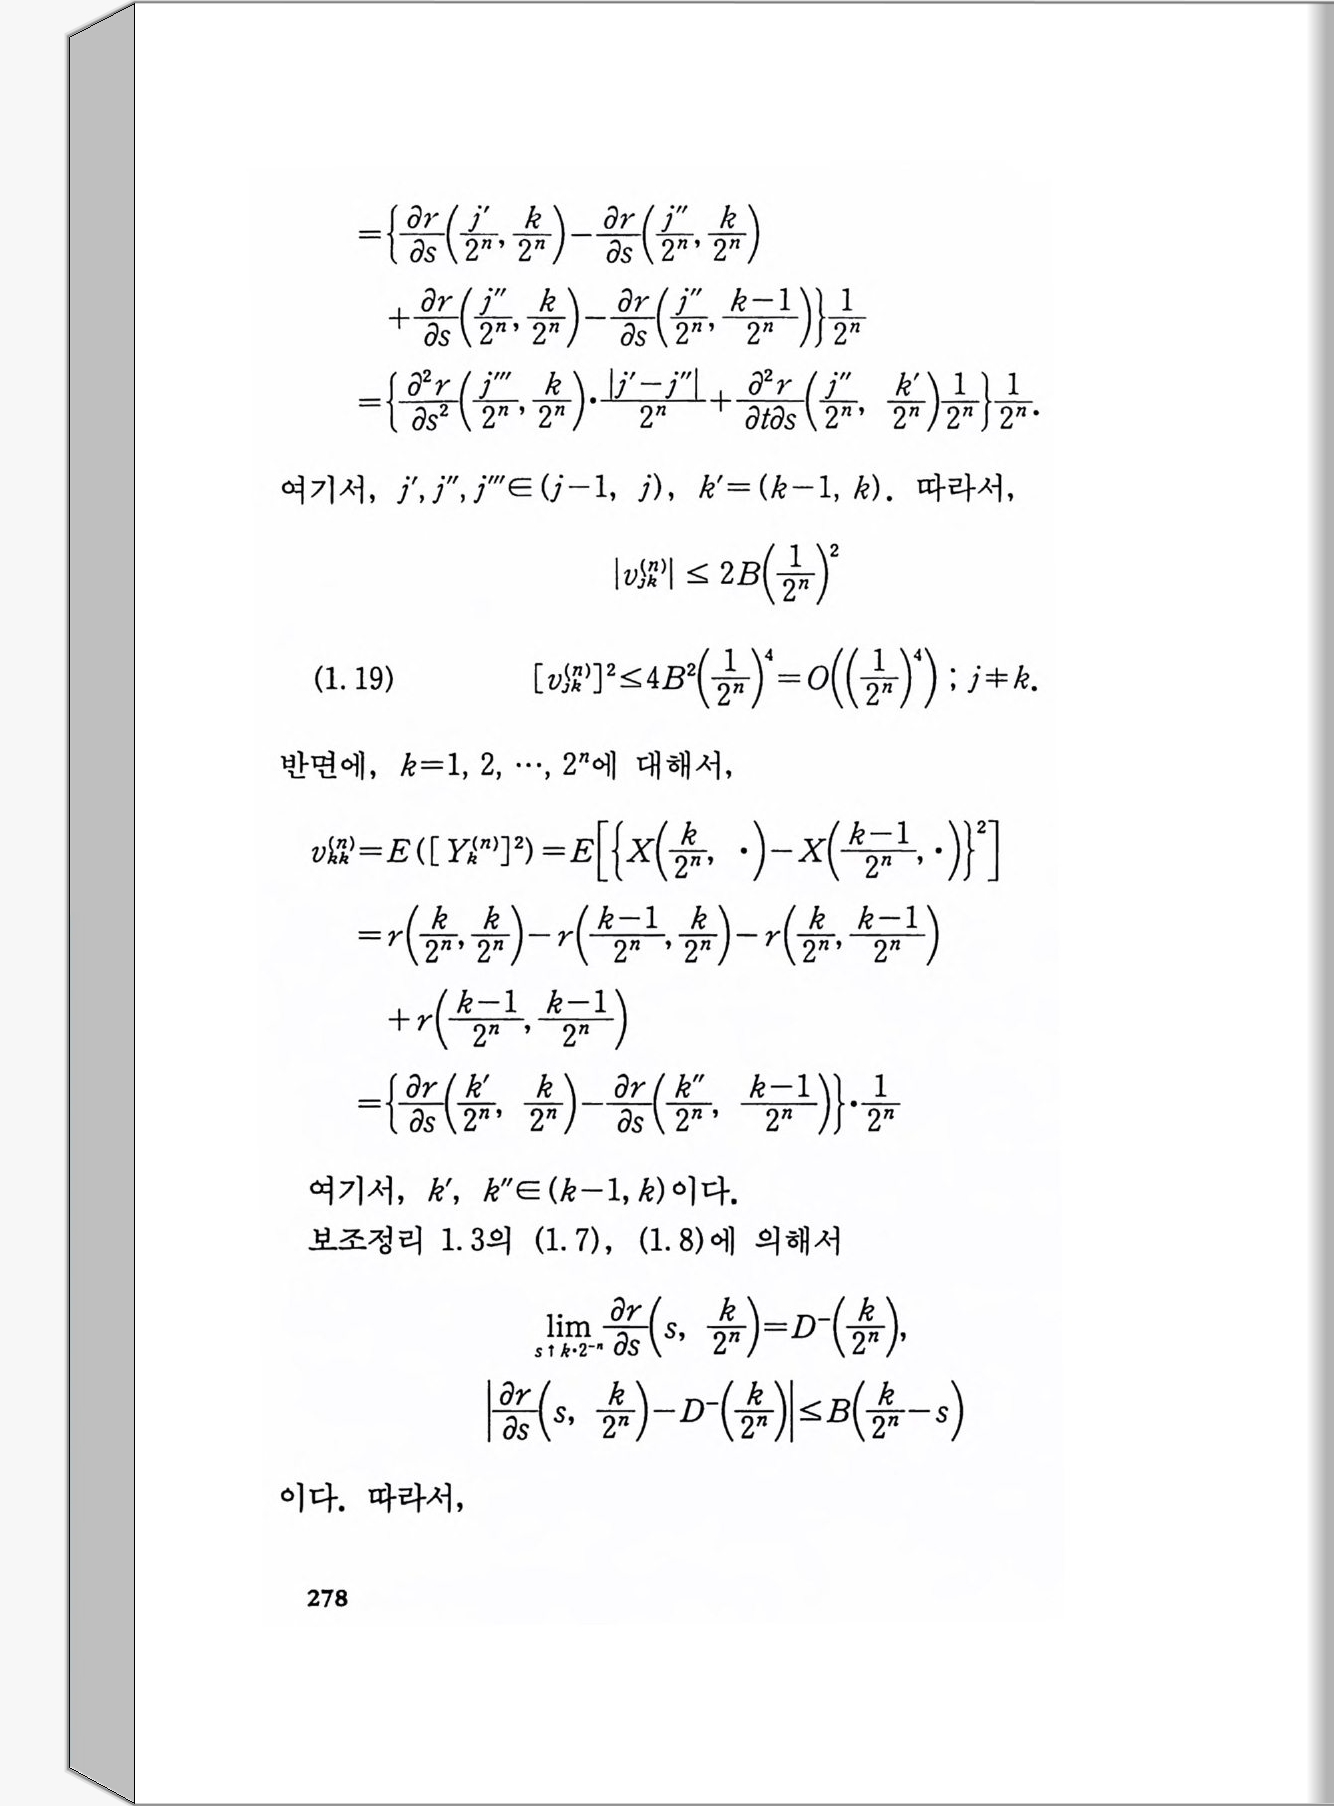 $=\left\{\frac{\partial r}{\partial s}\left(\frac{j'}{2^n}, \frac{k}{2^n}\right)-\frac{\partial r}{\partial s}\left(\frac{j''}{2^n}, \frac{k}{2^n}\right)\right.$
$\left.+\frac{\partial r}{\partial s}\left(\frac{j''}{2^n}, \frac{k}{2^n}\right)-\frac{\partial r}{\partial s}\left(\frac{j''}{2^n}, \frac{k-1}{2^n}\right)\right\}\frac{1}{2^n}$
$=\left\{\frac{\partial^2 r}{\partial s^2}\left(\frac{j'''}{2^n}, \frac{k}{2^n}\right)\cdot\frac{|j'-j''|}{2^n}+\frac{\partial^2 r}{\partial t\partial s}\left(\frac{j''}{2^n}, \frac{k'}{2^n}\right)\frac{1}{2^n}\right\}\frac{1}{2^n}.$
여기서, $j', j'', j'''\in(j-1, j)$, $k'=(k-1, k)$. 따라서,
$|v_{jk}^{(n)}|\leq 2B\left(\frac{1}{2^n}\right)^2$
(1.19) $[v_{jk}^{(n)}]^2\leq 4B^2\left(\frac{1}{2^n}\right)^4=O\left(\left(\frac{1}{2^n}\right)^4\right) ; j\neq k.$
반면에, $k=1, 2, \cdots, 2^n$에 대해서,
$v_{kk}^{(n)}=E([Y_k^{(n)}]^2)=E\left[\left\{X\left(\frac{k}{2^n}, \cdot\right)-X\left(\frac{k-1}{2^n}, \cdot\right)\right\}^2\right]$
$=r\left(\frac{k}{2^n}, \frac{k}{2^n}\right)-r\left(\frac{k-1}{2^n}, \frac{k}{2^n}\right)-r\left(\frac{k}{2^n}, \frac{k-1}{2^n}\right)$
$+r\left(\frac{k-1}{2^n}, \frac{k-1}{2^n}\right)$
$=\left\{\frac{\partial r}{\partial s}\left(\frac{k'}{2^n}, \frac{k}{2^n}\right)-\frac{\partial r}{\partial s}\left(\frac{k''}{2^n}, \frac{k-1}{2^n}\right)\right\}\cdot\frac{1}{2^n}$
여기서, $k', k''\in(k-1, k)$이다.
보조정리 1.3의 (1.7), (1.8)에 의해서
$\lim_{s\uparrow k\cdot 2^{-n}}\frac{\partial r}{\partial s}\left(s, \frac{k}{2^n}\right)=D^-\left(\frac{k}{2^n}\right),$
$\left|\frac{\partial r}{\partial s}\left(s, \frac{k}{2^n}\right)-D^-\left(\frac{k}{2^n}\right)\right|\leq B\left(\frac{k}{2^n}-s\right)$
이다. 따라서,
278